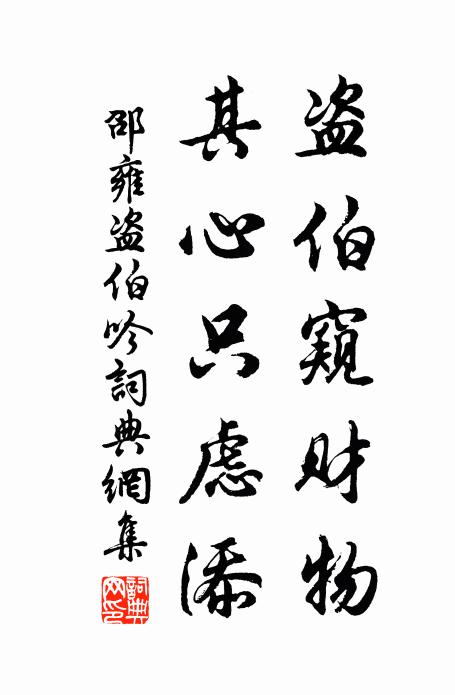 盗伯窺財物
其心只慮添
邵雍盗伯吟詞典網集
詞典網印